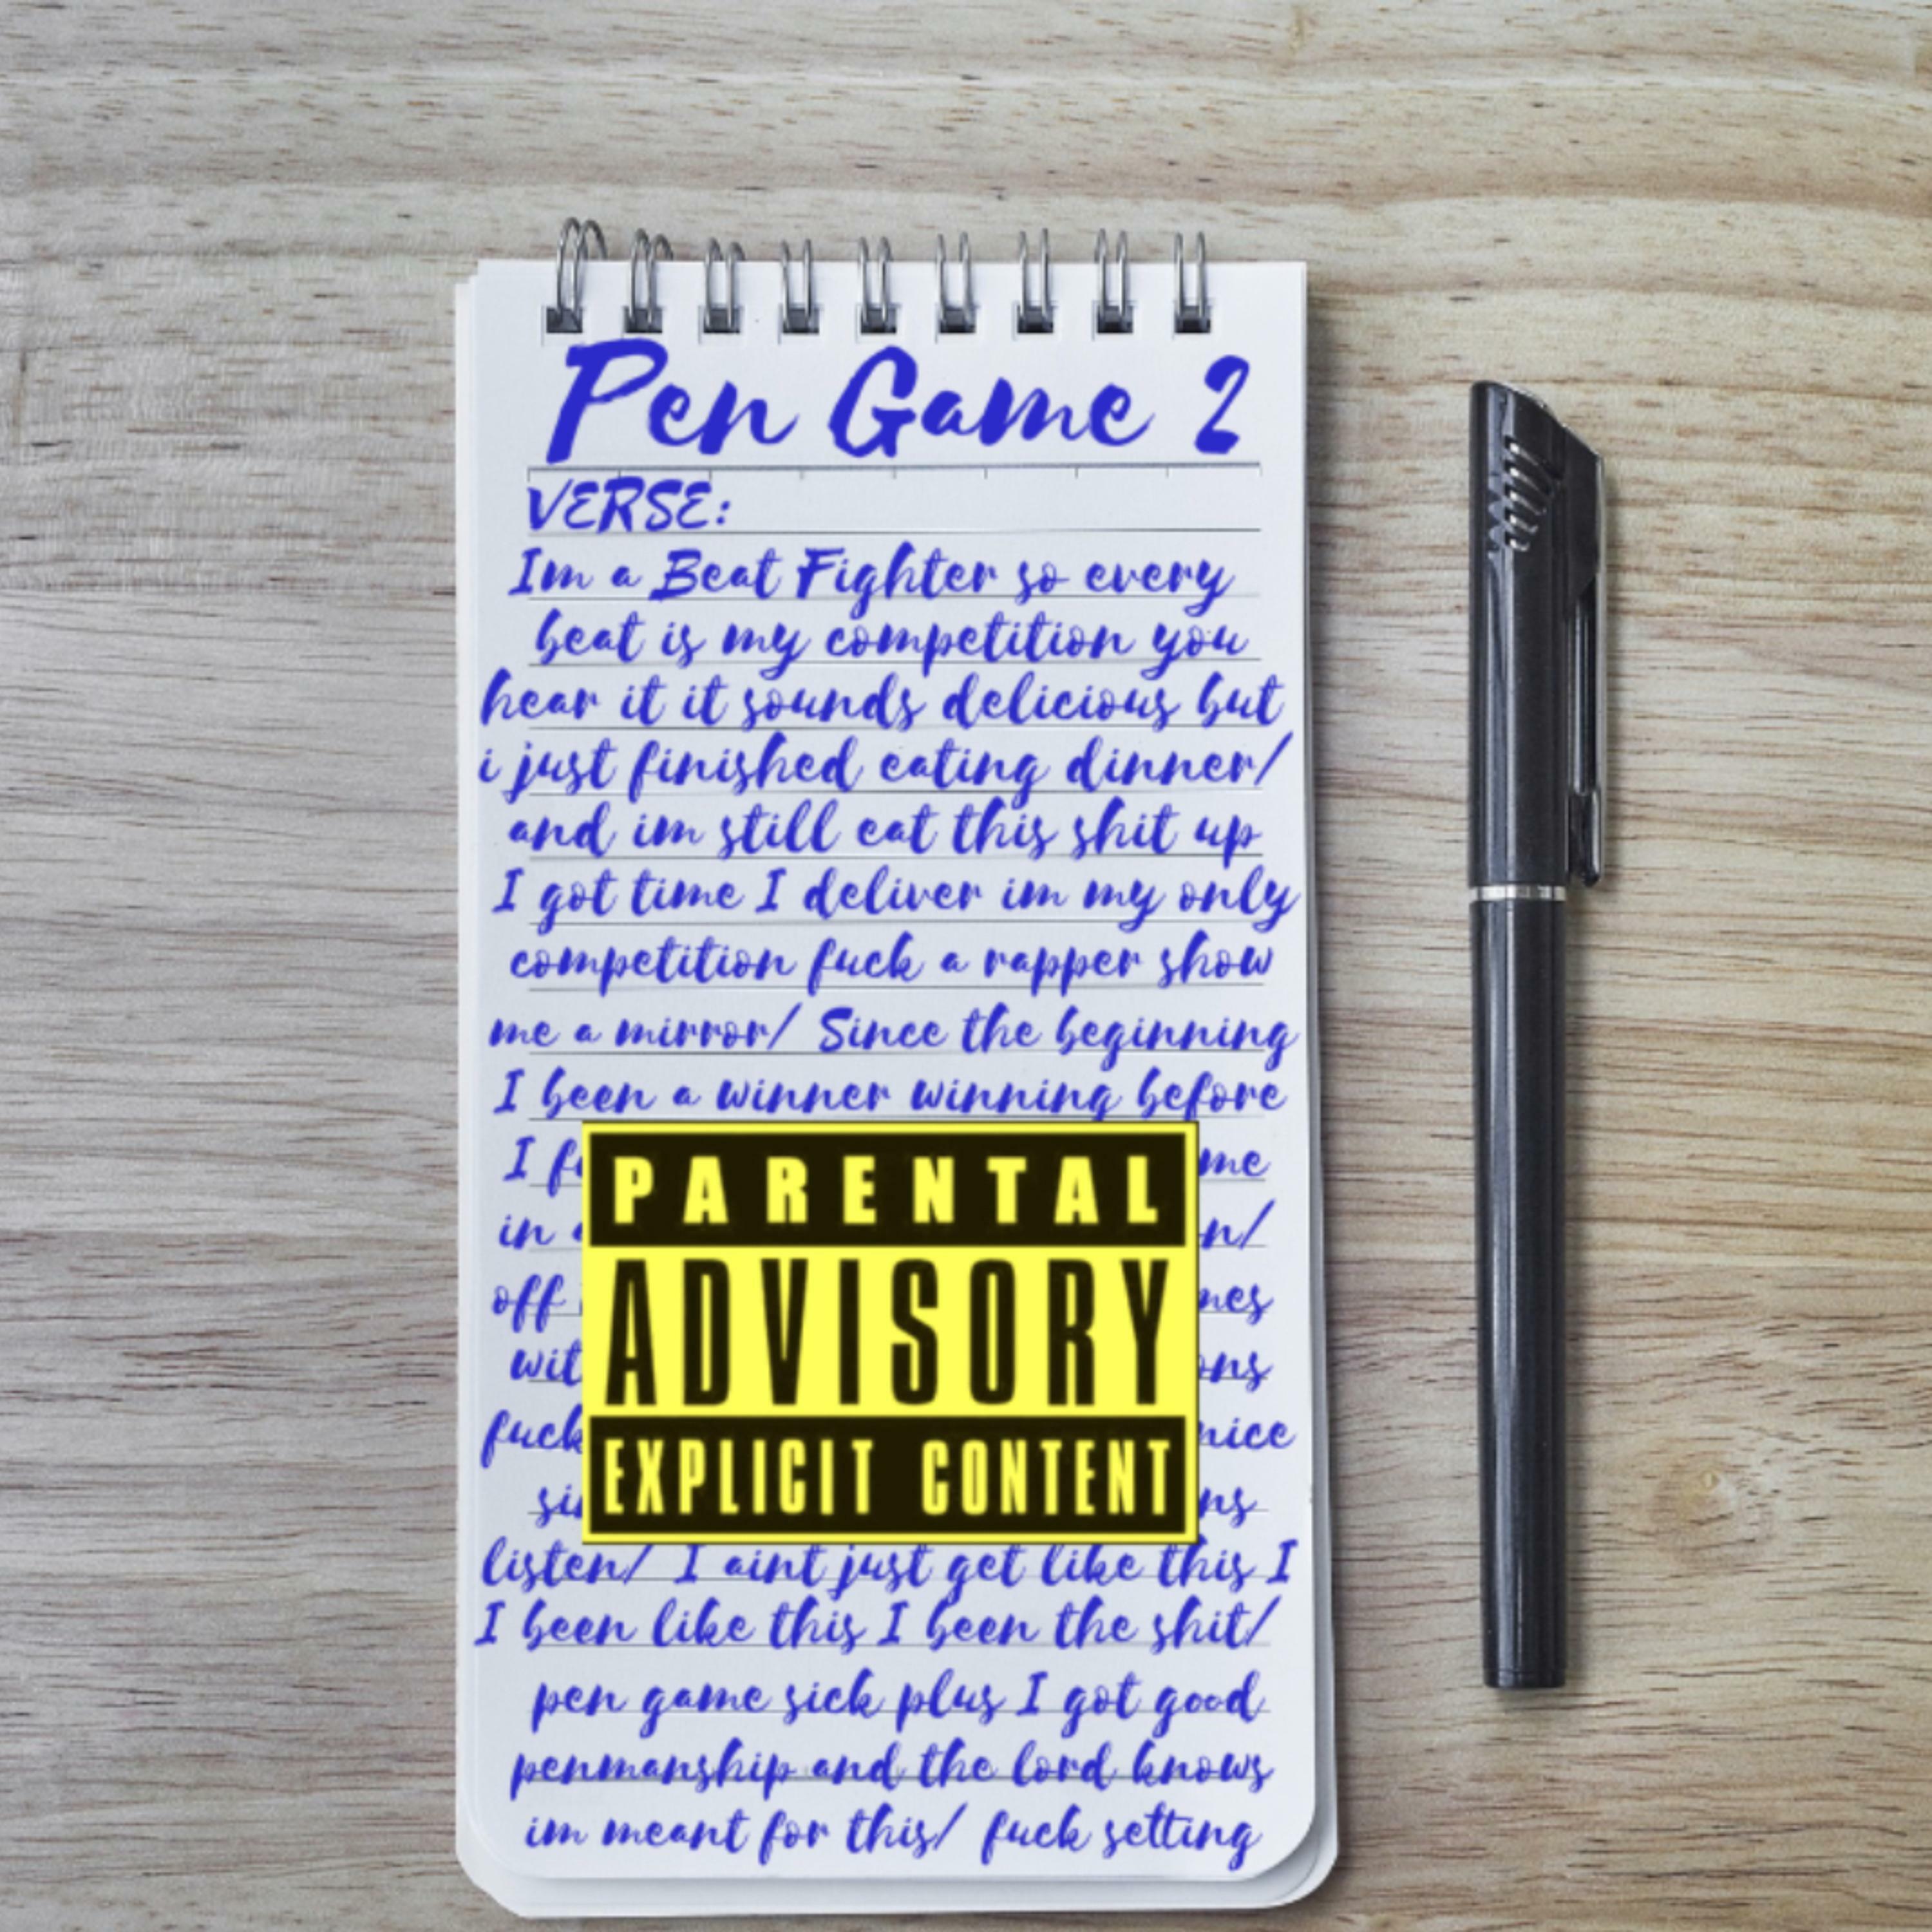 Pen Game 2
VERSE:
Im a Beat Fighter so every
beat is my competition you
hear it it sounds delicious but
i just finished eating dinner/
and im still eat this shit up
I got time I deliver im my only
competition fuck a rapper show
me a mirror/ Since the beginning
I been a winner winning before
I
in
off
fuck
PARENTAL
ADVISORY
EXPLICIT CONTENT
listen/ I aint just get like this I
I been like this I been the shit/
pen game sick plus I got good
penmanship and the lord knows
im meant for this/ fuck setting